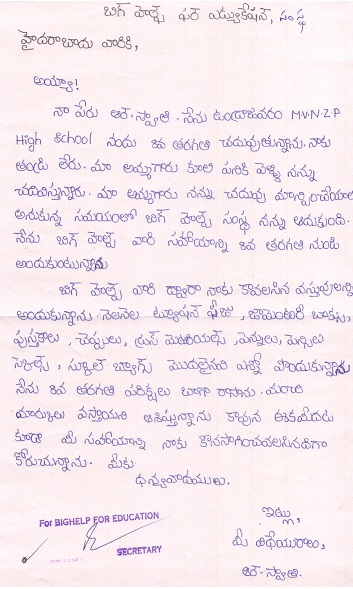 బిగ్ హెల్ప్ ఫర్ ఎడ్యుకేషన్, సంస్థ
హైదరాబాదు వారికి,
అయ్యా!
నా పేరు ఆర్. స్వాతి. నేను ఉండ్రాజవరం M.V.N.Z.P
High School నందు 10వ తరగతి చదువుతున్నాను. నాకు
తండ్రి లేరు. మా అమ్మగారు కూలి పనికి వెళ్ళి నన్ను
చదివిస్తున్నారు. మా అమ్మగారు నన్ను చదువు మాన్పించేయాలి
అనుకున్న సమయంలో బిగ్ హెల్ప్ సంస్థ నన్ను ఆదుకుంది.
నేను బిగ్ హెల్ప్ వారి సహాయాన్ని తరగతి నుండి
అందుకుంటున్నాను
బిగ్ హెల్ప్ వారి ద్వారా నాకు కావలసిన వస్తువులన్ని
అందుకున్నాను. నెలనెల ట్యూషన్ ఫీజు, జామెంటరీ బాక్సు,
పుస్తకాలు, చెప్పులు, మెటీరియల్స్, పెన్నులు, పెన్సిల్
స్కేల్స్, స్కూల్ బ్యాగ్స్ మొదలైనవి ఎన్నో పొందుకున్నాను
నేను 10వ తరగతి పరీక్షలు బాగా రాసాను. మంచి
మార్కులు వస్తాయని ఆశిస్తున్నాను కావున ఈకమీదట
కూడా మీ సహాయాన్ని నాకు కొనసాగించవలసినదిగా
కోరుచున్నాను. మీకు
ధన్యవాదములు.
ఇట్లు,
మీ విధేయురాలు,
ఆర్. స్వాతి.
For BIGHELP FOR EDUCATION
SECRETARY